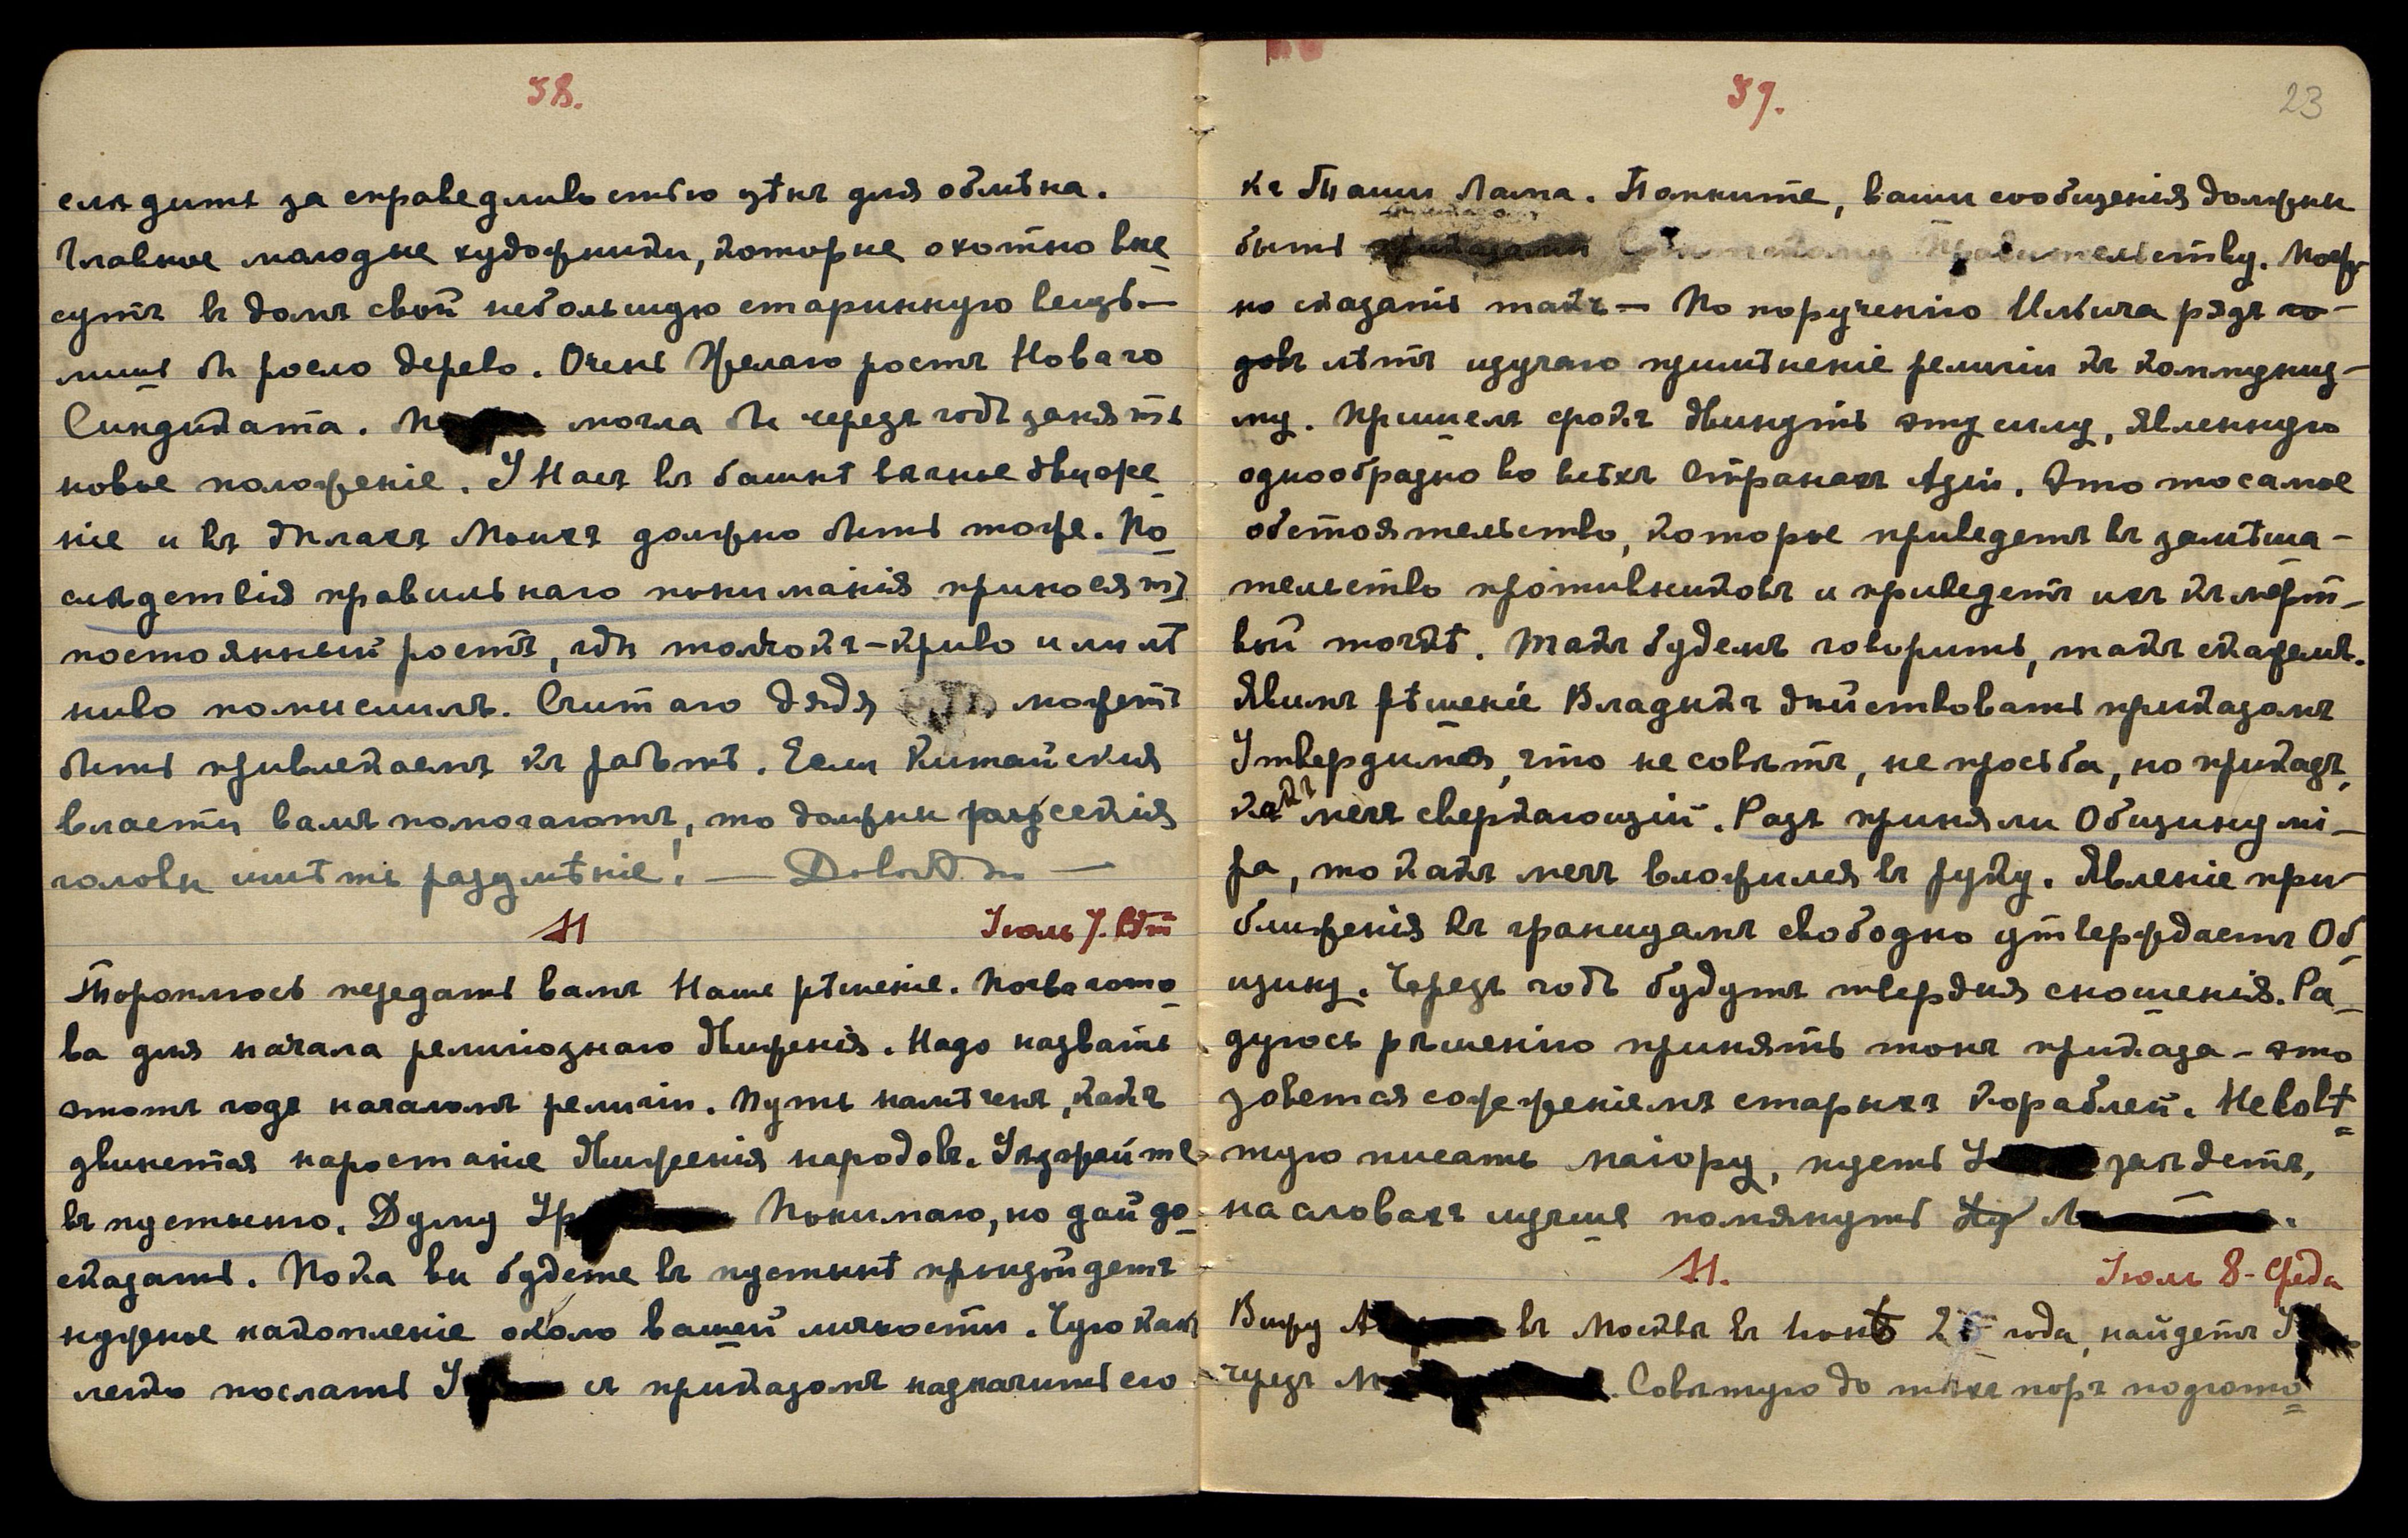 38.
слѣдить за справедливостью цѣнъ для обмѣна.
Главное молодые художники, которые охотно вне
сутъ въ домъ свой небольшую старинную вещь —
лишь бы росло дерево. Очень Желаю ростъ Новаго
Синдиката. могла бы черезъ годъ занять
новое положеніе. У Насъ въ башнѣ вѣчное движе
ніе и въ дѣлахъ Моихъ должно быть тоже. По
слѣдствія правильнаго пониманія приносятъ
постоянный ростъ, гдѣ толчокъ — криво или лѣ
ниво помыслилъ. Считаю дядя можетъ
быть привлекаемъ къ работѣ. Если Китайскія
власти вамъ помогаютъ, то должны русскія
головы имѣть разумѣніе! — Довольно —
11 Іюль 7. Вт
Тороплюсь передать вамъ Наше рѣшеніе. Почва гото
ва для начала религіознаго движенія. Надо назвать
этотъ годъ началомъ религіи. Путь намѣченъ, какъ
двинется наростаніе движенія народовъ. Ускоряйте
въ пустыню. Думу Ур Понимаю, но дай до
сказать. Пока вы будете въ пустынѣ произойдетъ
нужное накопленіе около вашей личности. Чутко какъ
легко послать У съ приказомъ назначить его
39. 23
къ Таши Лама. Помните, ваши сообщенія должны
быть приказами Совѣтскому Правительству. Мож-
но сказать такъ — По порученію Ильича рядъ го-
довъ лѣтъ изучаю примѣненіе религіи къ коммуниз-
му. Пришелъ срокъ двинуть эту силу, явленную
однообразно во всѣхъ Странахъ Азіи. Это то самое
обстоятельство, которое приведетъ въ замѣша-
тельство противниковъ и приведетъ ихъ къ мерт-
вой точкѣ. Такъ будемъ говорить, такъ скажемъ.
Явимъ рѣшеніе Владыкъ дѣйствовать приказомъ
Утвердимся, что не совѣтъ, не просьба, но приказъ,
какъ мечъ сверкающій. Разъ приняли Общину мі-
ра, то какъ мечъ вложился въ руку. Явленіе при
ближенія къ границамъ свободно утверждаетъ Об
щину. Черезъ годъ будутъ твердыя сношенія. Ра
дуюсь рѣшенію принять тонъ приказа — это
зовется сожженіемъ старыхъ кораблей. Не совѣ
тую писать маіору, пусть У заѣдетъ,
на словахъ лучше помянуть
11. Іюль 8 - Среда
Вижу А въ Москвѣ въ года, найдетъ У
черезъ М Совѣтую до тѣхъ поръ подгото